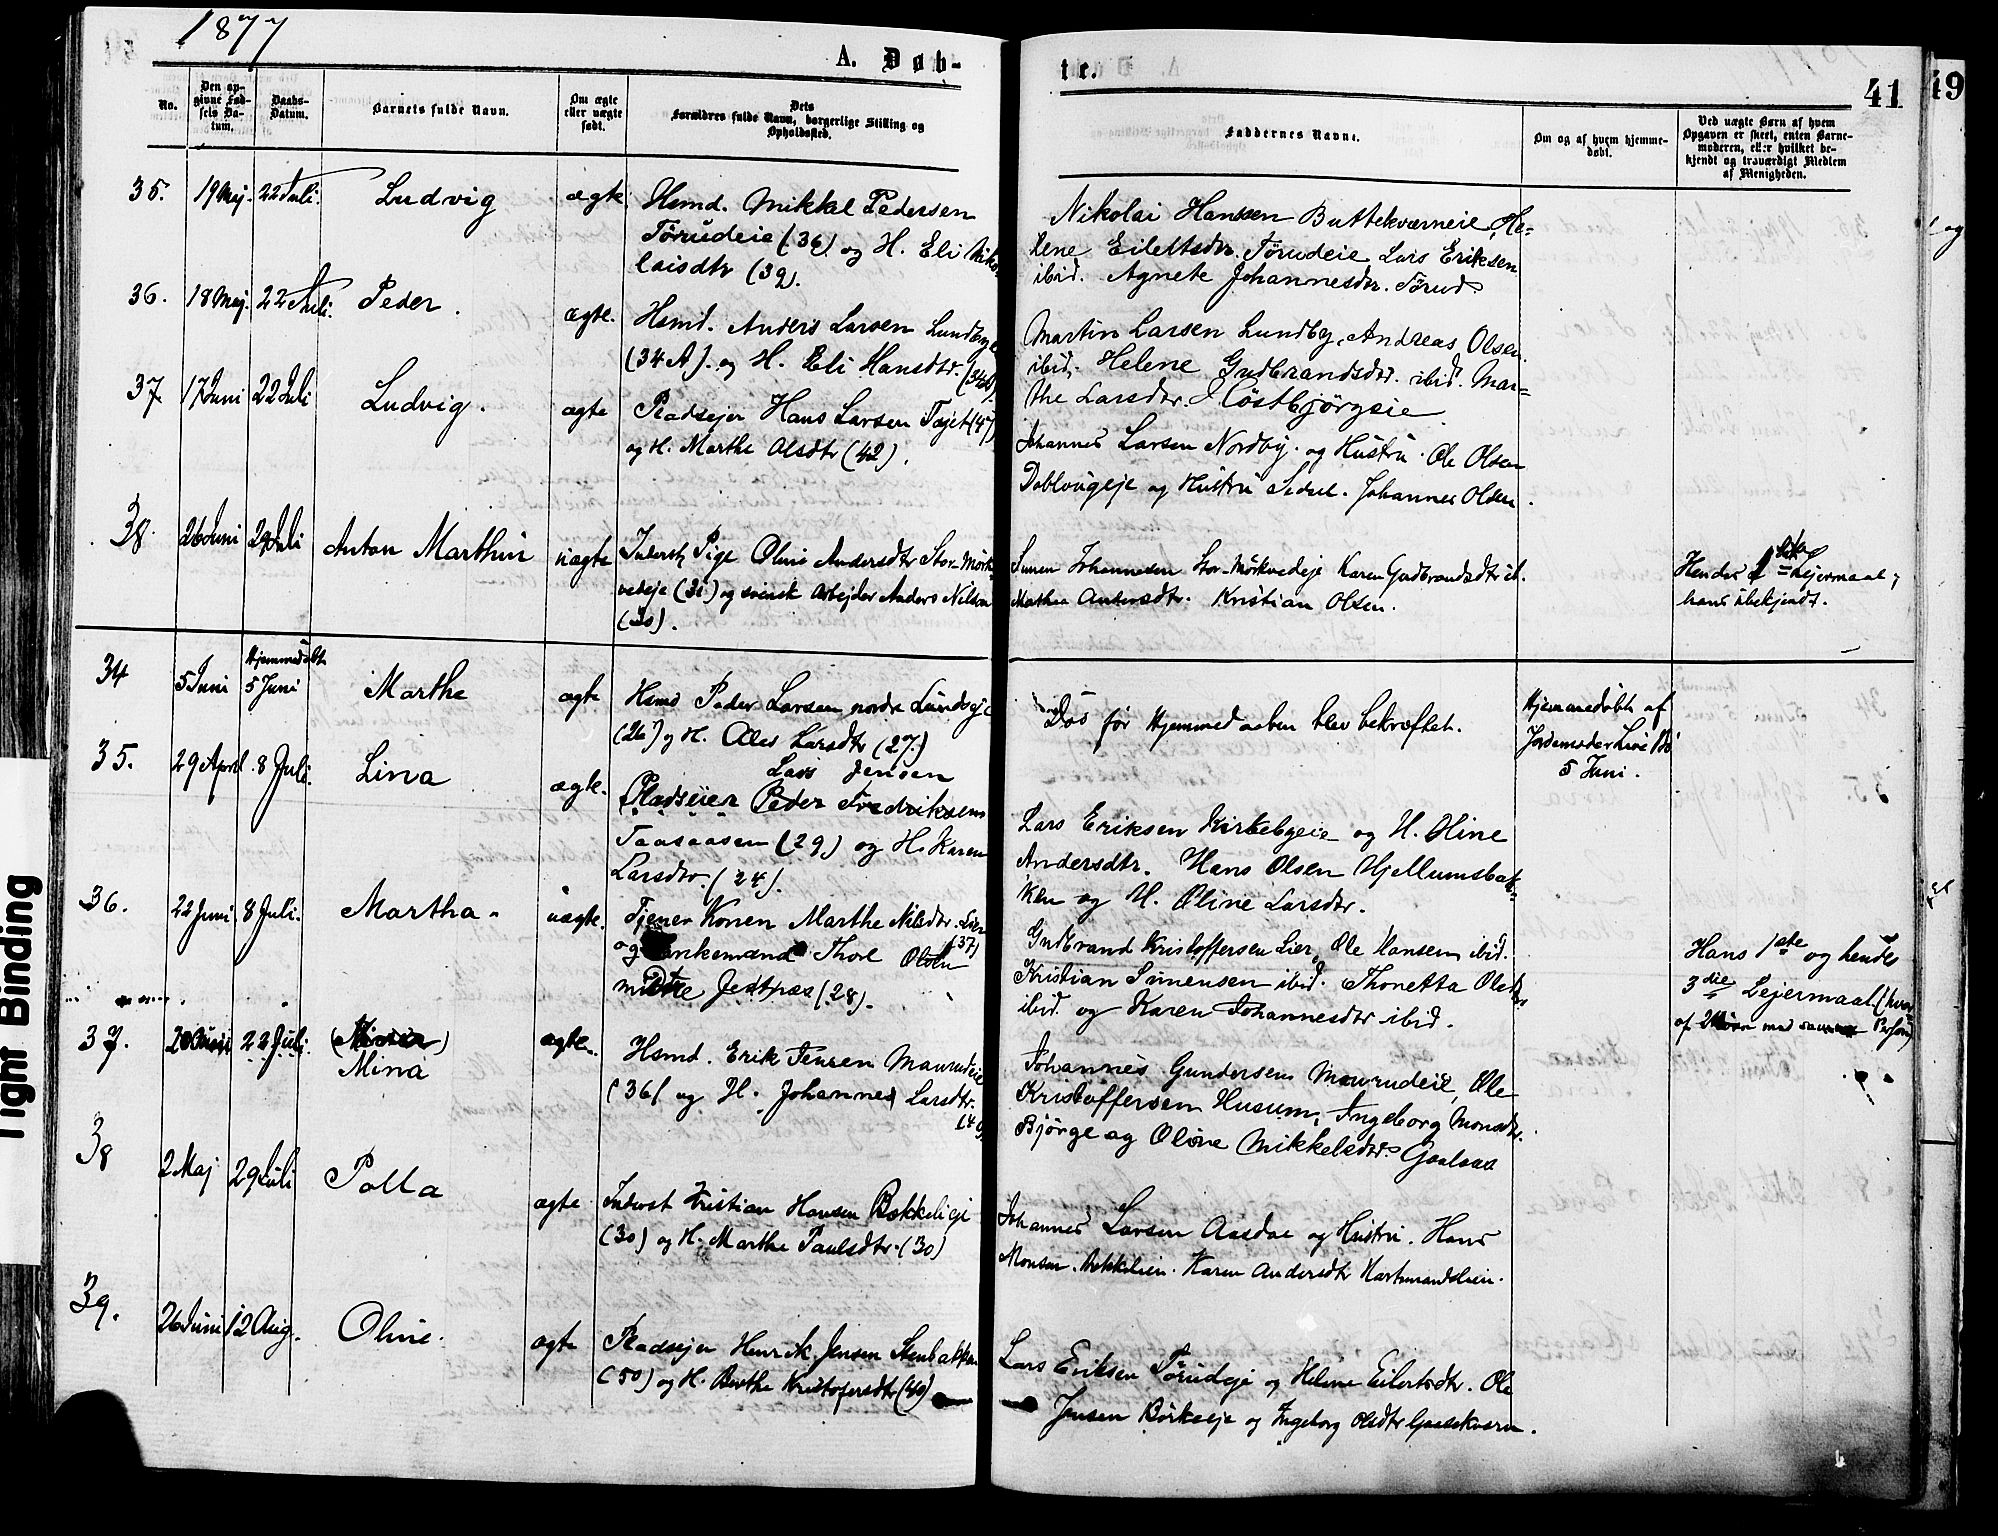 1877
A. Døb-
te.
41
49
No.
Den op-
givne Fød-
sels Da-
tum.
Daabs-
Datum.
Barnets fulde Navn.
Om ægte
eller uægte
født.
Dets
Forældres fulde Navn, borgerlige Stilling og
Opholdssted.
Faddernes Navne.
Om og af hvem hjemme-
døbt.
Ved uægte Børn af hvem
Opgaven er skeet, enten Barne-
moderen, eller hvilket be-
kjendt og troværdigt Medlem
af Menigheden.
35. 19 Maj. 22 Juli. Ludvig ægte
Hsmd. Mikkel Pedersen
Törudeie (36) og H. Eli Niko-
laisdtr (39).
Nikolai Hanssen Buttekværneie, He-
lene Eilertsdtr. Törudeie Lars Eriksen
ibid. Agnete Johannesdtr. Törud.
36. 18 Maj. 22 Juli. Peder. ægte.
Hsmd. Anders Larsen Lundbye
(34 A). og H. Eli Hansdtr.
Martin Larsen Lundby, Andreas Olsen
ibid, Helene Gudbrandsdtr. ibid. Mar-
the Larsdtr.
37 17 Juni 22 Juli Ludvig. ægte
Pladsejer Hans Larsen Tajet (47)
og H. Marthe Olsdtr (42).
Johannes Larsen Nordby. og Hustru. Ole Olsen
Doblougeje og Hustru Johannes Olsen.
38. 26 Juni 29 Juli Anton Marthin uægte
Inderst, Pige Oline Andersdtr Stor-Mörk-
vedeje (30) og svensk Arbejder Anders Nilsen
(30).
Simen Johannesen Stor-Mörkvedeje Karen Gudbrandsdtr ib.
Mathea Andersdtr. Kristian Olsen.
Hendes 1ste Lejermaal,
hans ubekjendt.
34 5 Juni Hjemmedöbt
5 Juni Marthe ægte
Hsmd Peder Larsen nordre Lundseje
(26) og H. Alis Larsdtr (27.)
Död för Hjemmedaaben blev bekræftet.
Hjemmedöbt af
Jordemoder Lise Bö
5 Juni.
35. 29 April 8 Juli. Lina ægte.
Lars Jensen
Pladseier Peder Fredriksen
Taasaasen (29) og H. Karen
Larsdtr. (24).
Lars Eriksen Kirkebyeie og H. Oline
Andersdtr. Hans Olsen Hjellumsbak-
ken og H. Oline Larsdtr.
36. 22 Juni 8 Juli. Martha. uægte.
Tjener Konen Marthe Nilsdtr. Lier
(37)
og Enkemand Thore Olsen
(28).
Gudbrand Kristoffersen Lier, Ole Hansen ibid.
Kristian Simensen ibid. Thonetta Olsdtr
ibid. og Karen Johannesdtr ibid.
Hans 1ste og hendes
3die Lejermaal (hvor-
af 2 Börn med samme Person)
37. 20 Juni 22 Juli. Mina ægte.
Hsmd. Erik Jensen Maurudeie
(36) og H. Johanne Larsdtr.
(40)
Johannes Gundersen Maurudeie, Ole
Kristoffersen Husum, Ingeborg Monsdtr.
Björge og Oline Mikkelsdtr. Gaalaas
38 2 Maj 29 Juli Polla ægte
Inderst Kristian Hansen Bækkeliej
(30) og H. Marthe Paulsdtr. (30)
Johannes Larsen Aasdae og Hustru. Hans
Monsen. Bækkelien. Karen Andersdtr Hartmandslien.
39. 26 Juni 12 Aug. Oline. ægte
Pladsejer Henrik Jensen Stenbakken
(50) og H. Berthe Kristofersdtr (40)
Lars Eriksen Törudeje og Helene Eilertsdtr. Ole
Jensen Börkeeje og Ingeborg Olsdtr Gaasekværn.
Tight Binding